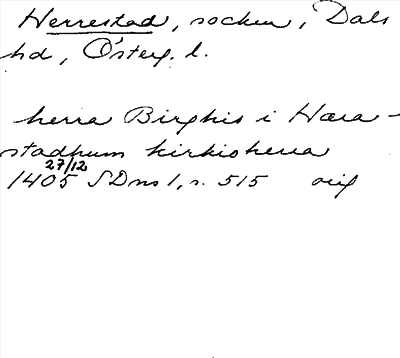 Herrestad, socken, Dals
hd, Österg. l.
herra Birghis i Hæra-
stadhum kirkioherra
27/12
1405 SDns 1, s. 515 orig